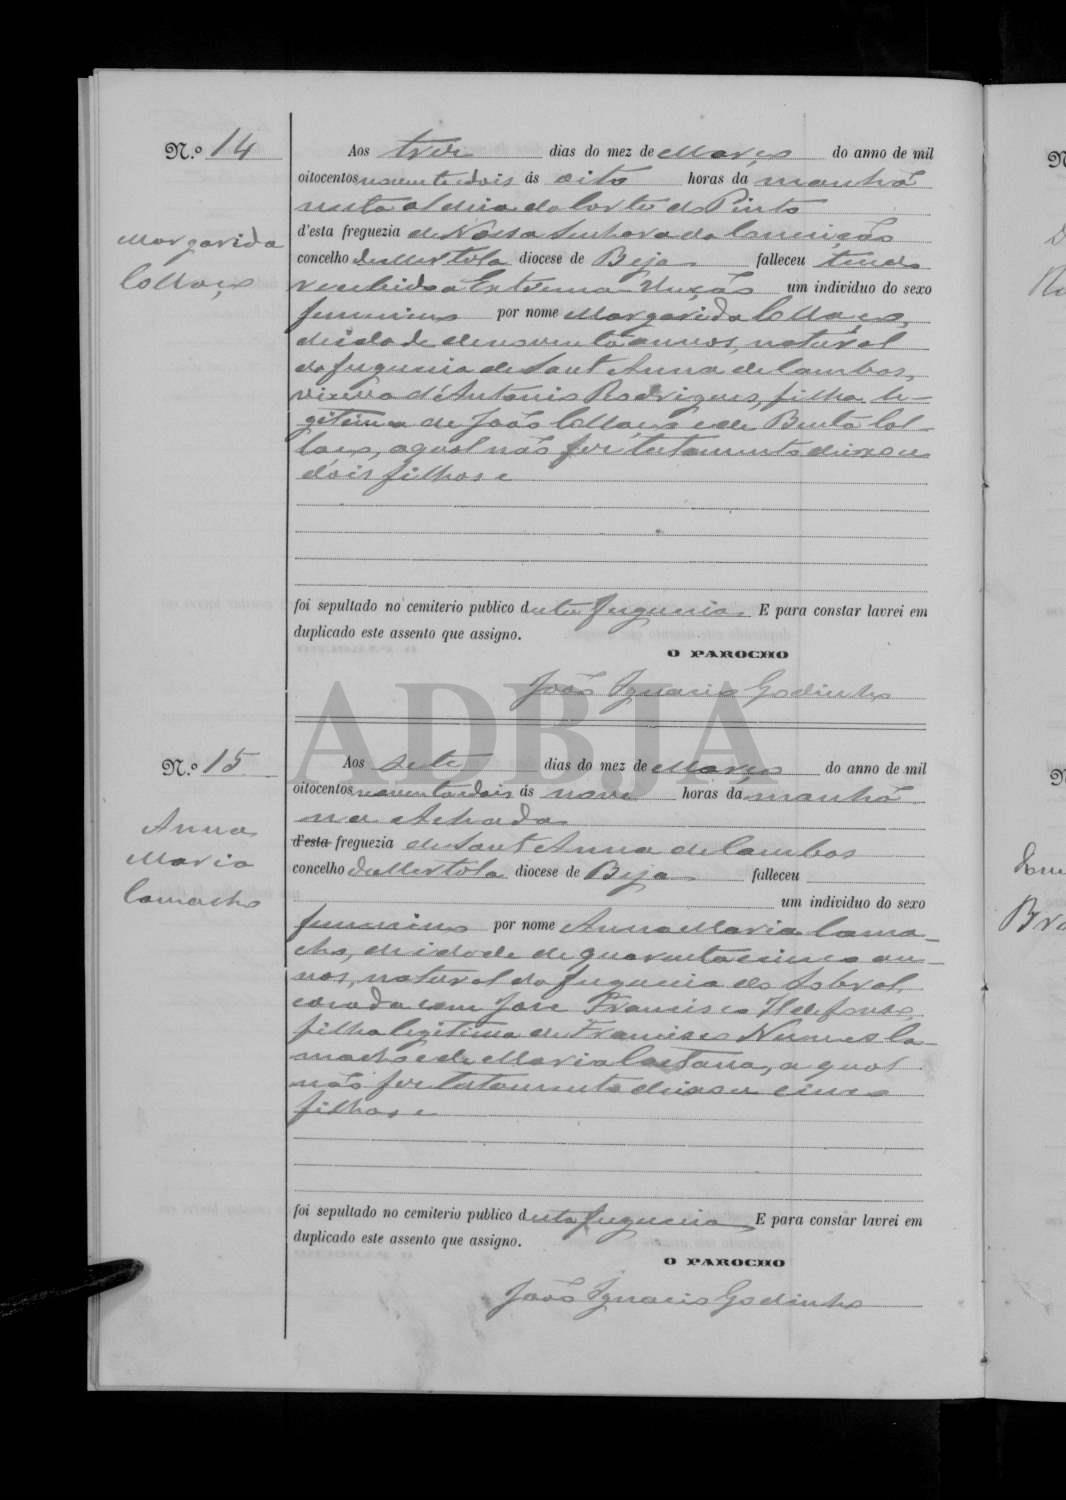 N.º 14
Aos tres dias do mez de Março do anno de mil
oitocentos noventa e dois ás oito horas da manhã
nesta aldeia da Corte do Pinto
d'esta freguezia de Nossa Senhora da Conceição
Margarida
concelho de Mertola diocese de Beja falleceu tendo
Collaço
recebido a Extrema Unção um individuo do sexo
feminino por nome Margarida Collaço,
de idade de noventa annos, natural
da freguezia de Sant'Anna de Cambas,
viuva d'Antonio Rodrigues, filha le-
gitima de João Collaço e de Benta Col-
laço, a qual não fez testamento deixou
dois filhos e
foi sepultado no cemiterio publico d'esta freguezia. E para constar lavrei em
duplicado este assento que assigno.
O PAROCHO
João Ignacio Godinho
ADBJA
N.º 15
Aos sete dias do mez de Março do anno de mil
oitocentos noventa e dois ás nove horas da manhã
na Achada
Anna
d'esta freguezia de Sant'Anna de Cambas
Maria
concelho de Mertola diocese de Beja falleceu
Camacho
um individuo do sexo
feminino por nome Anna Maria Cama-
cho, de idade de quarenta e cinco an-
nos, natural da freguezia do Sobral,
casada com José Francisco Ildefonso,
filha legitima de Francisco Nunes Ca-
macho e de Maria Caetana, a qual
não fez testamento deixou cinco
filhos e
foi sepultado no cemiterio publico d'esta freguezia E para constar lavrei em
duplicado este assento que assigno.
O PAROCHO
João Ignacio Godinho